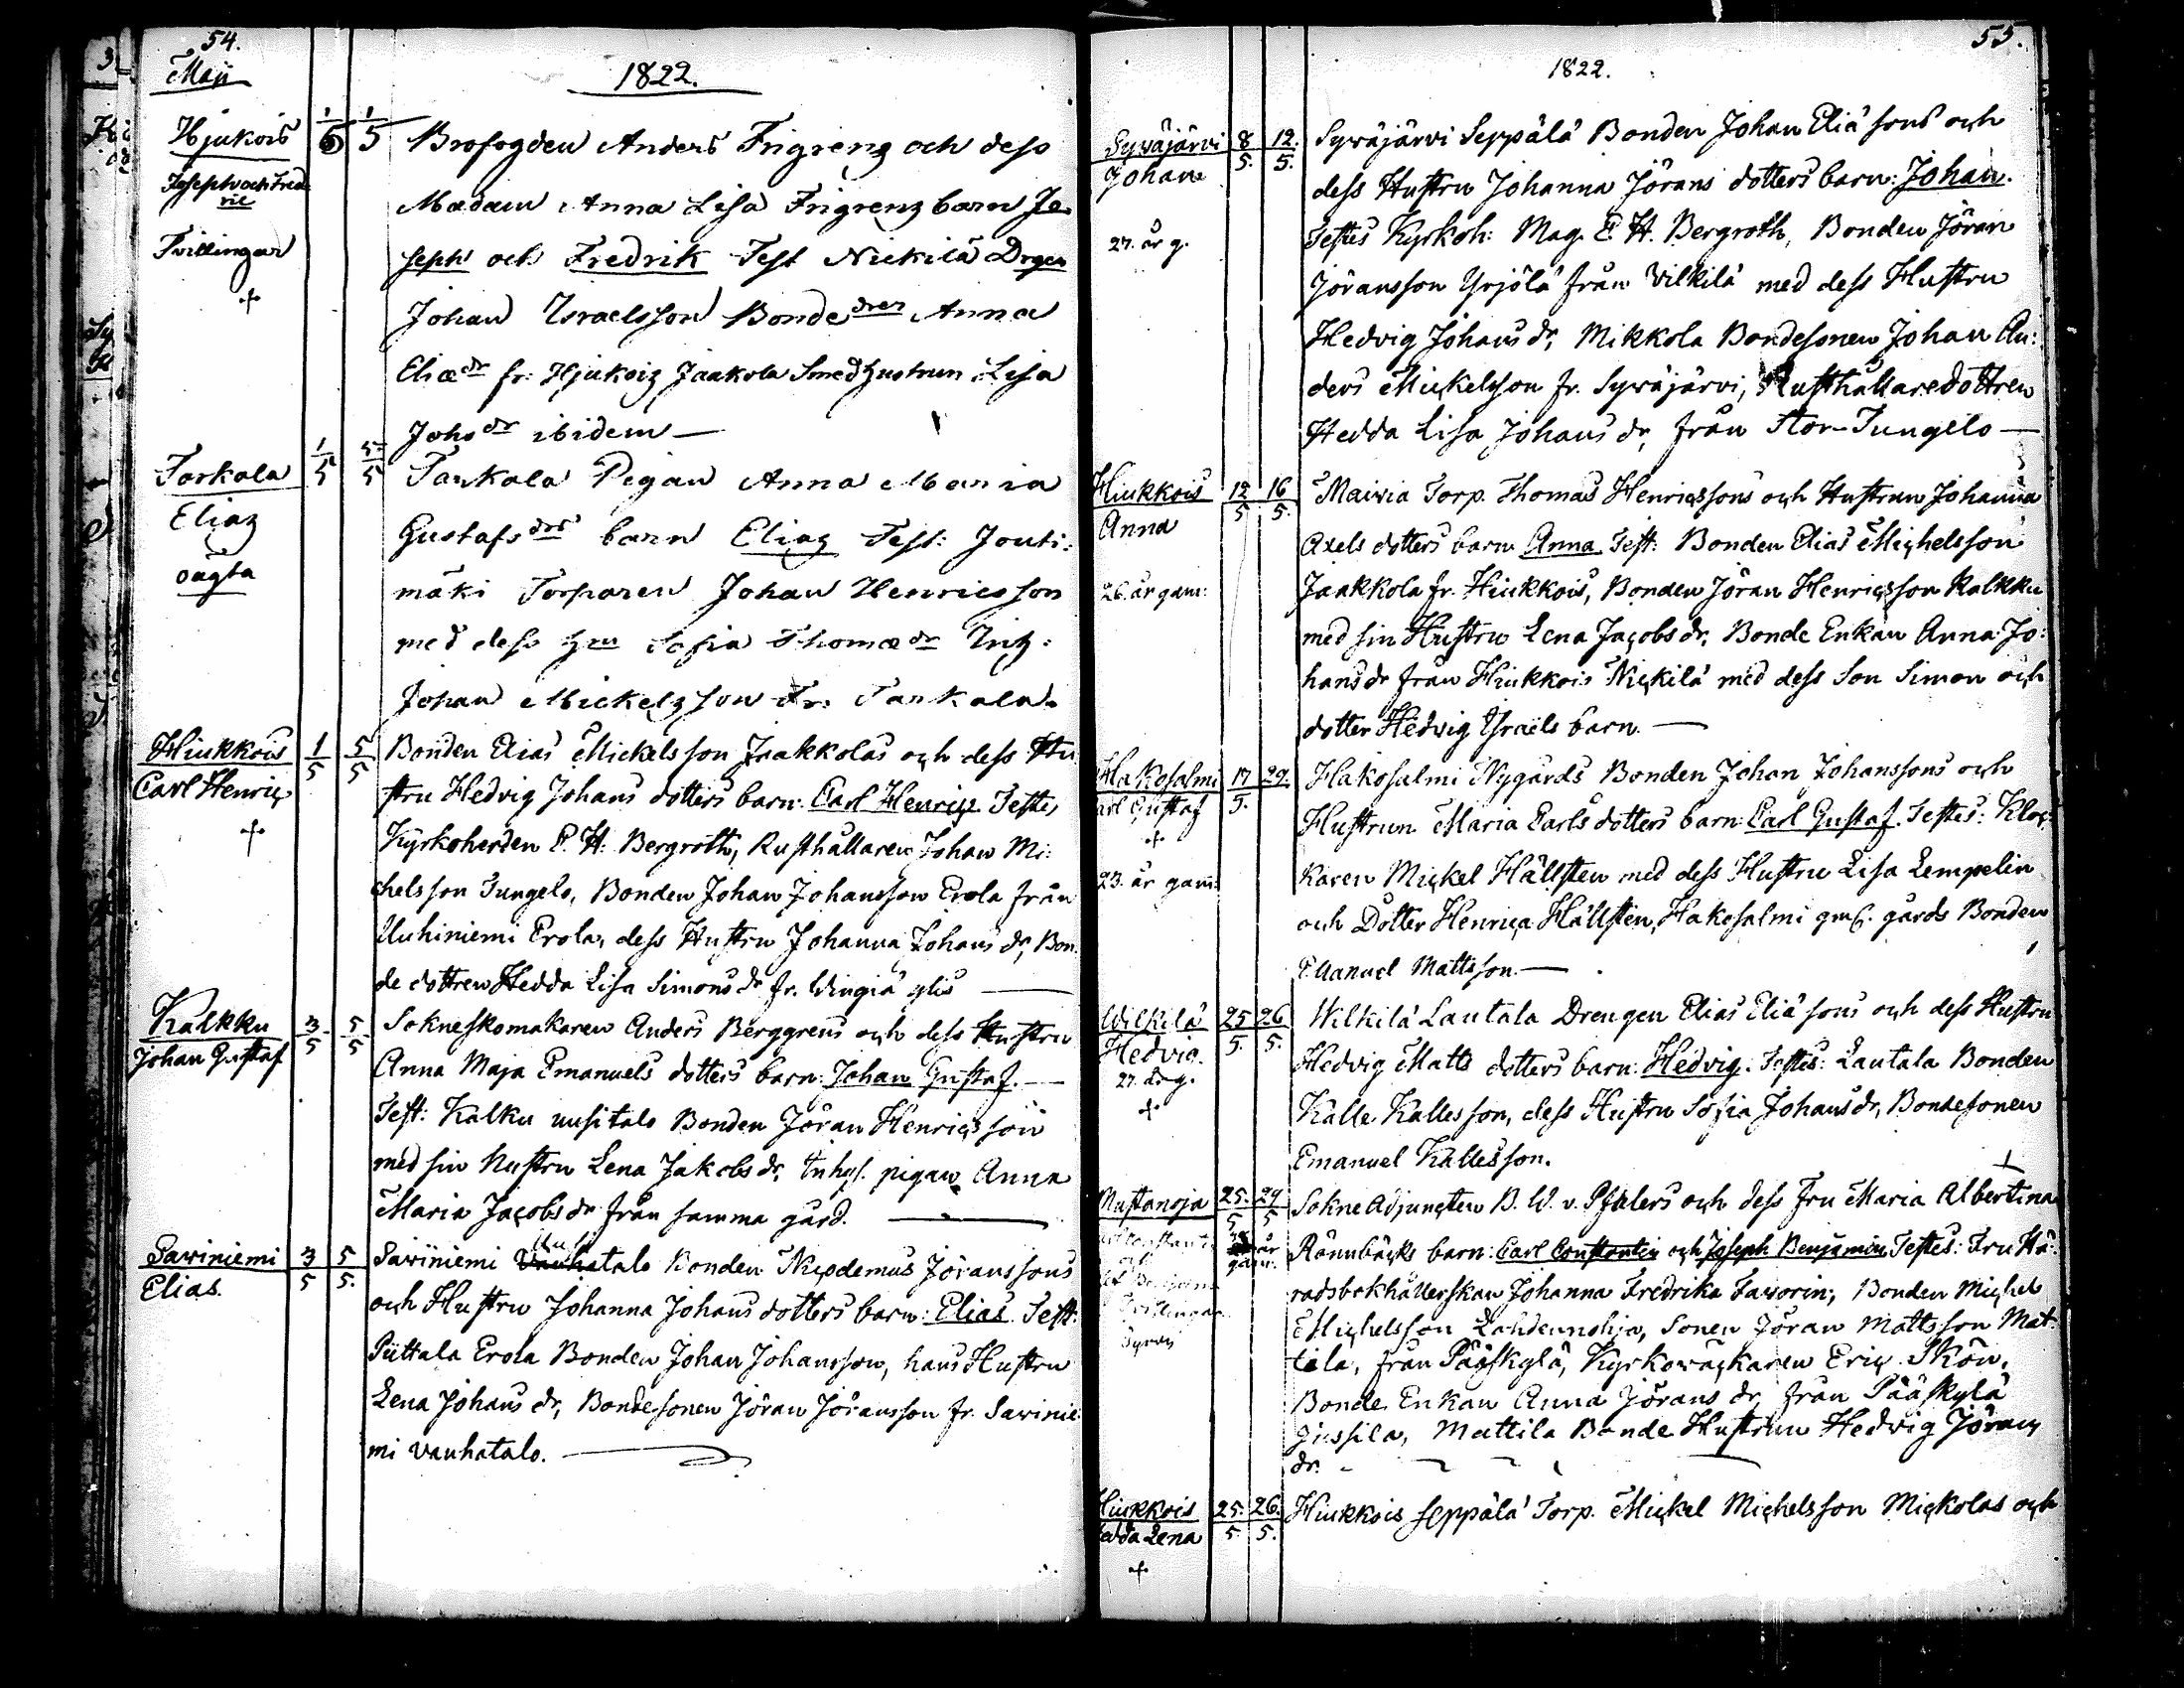 54.
Maji
1822.
Hjukois
Joseph och Fred
ric
Tvillingar
1/5 1/5
Brofogden Anders Frigrenz och dess
Madam Anna Lisa Frigrenz barn Jo
seph och Fredrik Test Nickilä Drgen
Johan Israelsson Bondedren Anna
Eliædr fr: Hjukoiz Jaakola Smedhustrun Lisa
Johsdr ibidem —
Tarkala
Eliaz
oägta
1/5 5/5
Tarkala Pigan Anna Maria
Gustafsdrs barn Eliaz Test: Jouti:
mäki Torparen Johan Henricsson
med dess hru Sofia Thomædr
Johan Mickelzson Fr: Tarkala.
Hiukkois
Carl Henric
1/5 5/5
Bonden Elias Mickelsson Jaakkolas och dess Hu
stru Hedvig Johans dotters barn: Carl Henric Testes
Kyrkoherden E. H. Bergroth, Rusthållaren Johan Mi:
chelsson Tungelo, Bonden Johan Johansson Erola från
Uuhiniemi Erola, dess Hustru Johanna Johans dr, Bon
de dottren Hedda Lisa Simons dr fr. —
Kalkku
Johan Gustaf
3/5 5/5
Sokneskomakaren Anders Berggrens och dess Hustru
Anna Maja Emanuels dotters barn: Johan Gustaf. —
Test: Kalku uusitalo Bonden Jöran Henricsson
med sin Hustru Lena Jakobs dr, Inhys. pigan Anna
Maria Jacobs dr från samma gård. —
Sawiniemi
Elias.
3/5 5/5.
Sawiniemi Vanhatalo Bonden Nicodemus Jöranssons
och Hustru Johanna Johans dotters barn: Elias. Test:
Püttala Erola Bonden Johan Johansson, hans Hustru
Lena Johans dr, Bondesonen Jöran Jöransson fr. Sawinie
mi vanhatalo. —
55.
1822.
Syväjärvi
Johan
27. år g.
8/5. 12./5.
Syväjärvi Seppälä Bonden Johan Eliä sons och
dess Hustru Johanna Jörans dotters barn: Johan.
Testes Kyrkoh: Mag. E. H. Bergroth, Bonden Jöran
Jöransson Yrjölä från Vilkilä med dess Hustru
Hedvig Johans dr, Mikkola Bondesonen Johan An:
ders Mickelsson fr. Syväjärvi, Rusthållaredottren
Hedda Lisa Johans dr, från Stor-Tungelo —
Hiukkois
Anna
26. år gam:
12/5 16/5.
Mairia Torp. Thomas Henricssons och Hustrun Johanna
Axels dotters barn Anna Test: Bonden Elias Michelsson
Jaakkola fr. Hiukkois, Bonden Jöran Henricsson Kalkku
med sin Hustru Lena Jacobs dr, Bonde Enkan Anna Jo:
hans dr från Hiukkois Nickilä med dess Son Simon och
dotter Hedvig Israëls barn. —
Hakosalmi
arl Gustaf
23. år gam:
17/5. 29.
Hakosalmi Nygårds Bonden Johan Johanssons och
Hustrun Maria Carls dotters barn: Carl Gustaf. Testes: Kloc:
karen Mickel Hällsten med dess Hustru Lisa Lempelin
och Dotter Henrica Hällsten, Hakosalmi gml. gårds Bonden
Emanuel Mattsson. —
Wilkilä
Hedvig.
27. år g.
25/5. 26/5.
Wilkilä Lautala Drengen Elias Eliä sons och dess Hustru
Hedvig Matts dotters barn: Hedvig. Testes: Lautala Bonden
Kalle Kallesson, dess Hustru Sofia Johans dr, Bondesonen
Emanuel Kallesson.
Mustanoja
och
Tvillingar
25./5 29/5
år
gam.
Sokne Adjuncten B. W. v. Pfalers och dess Fru Maria Albertina
Rönnbäcks barn: Carl Constantin och Joseph Benjamin Testes: Fru Hä:
radsbokhållerskan Johanna Fredrika Faworin, Bonden Michel
Michelsson Lahdennohja, Sonen Jöran Mattsson Mat:
tila, från Pääskylä, Kyrkowäckaren Eric Skön,
Bonde Enkan Anna Jörans dr, från Pääskylä
Jussila, Mattila Bonde Hustrun Hedvig Jörans
dr. -
Hiukkois
edda Lena
25./5. 26./5.
Hiukkois Seppälä Torp. Mickel Michelsson Mickolas och